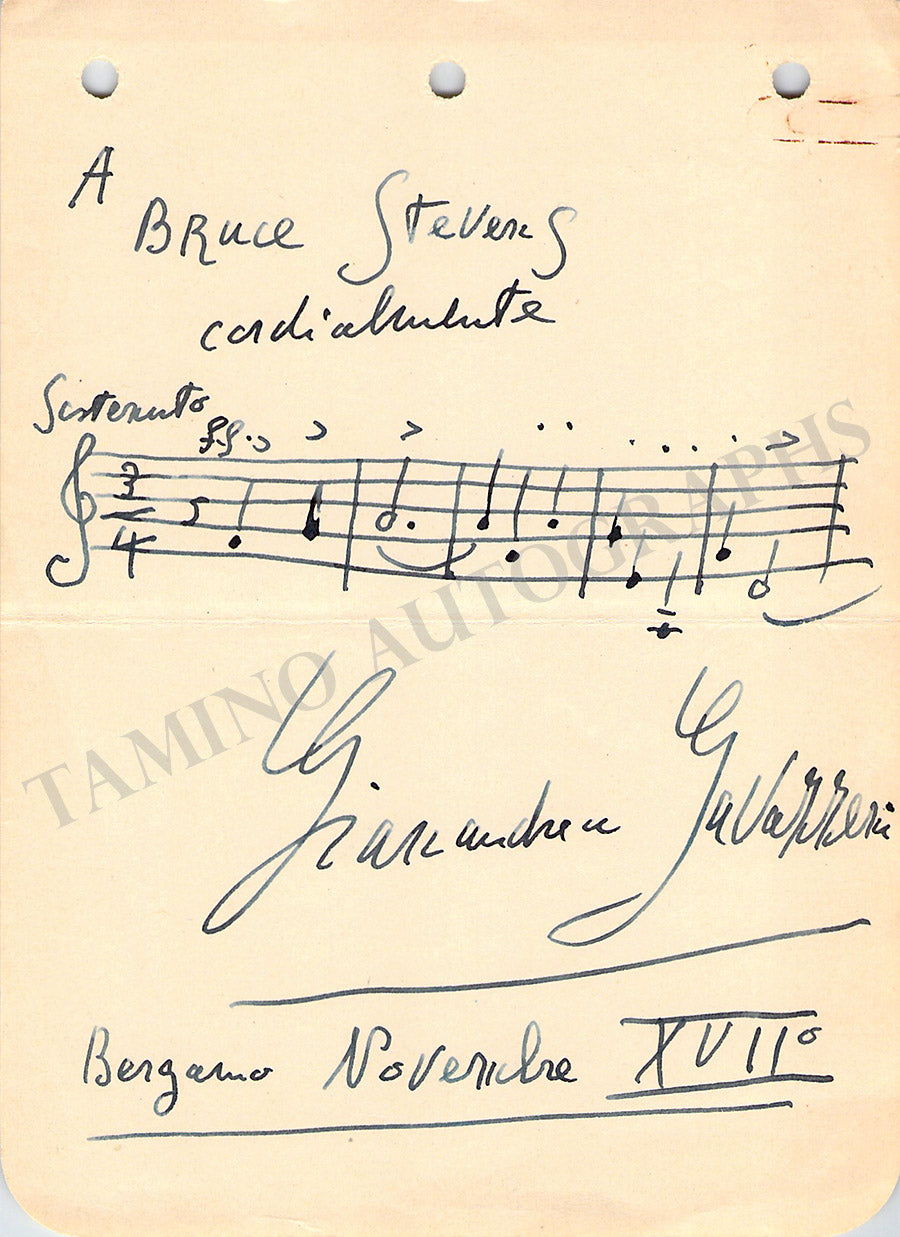 A
Bruce Stevens
cordialmente
Sostenuto
ff
3
4
Gianandrea Gavazzeni
Bergamo Novembre XVII°
TAMINO AUTOGRAPHS